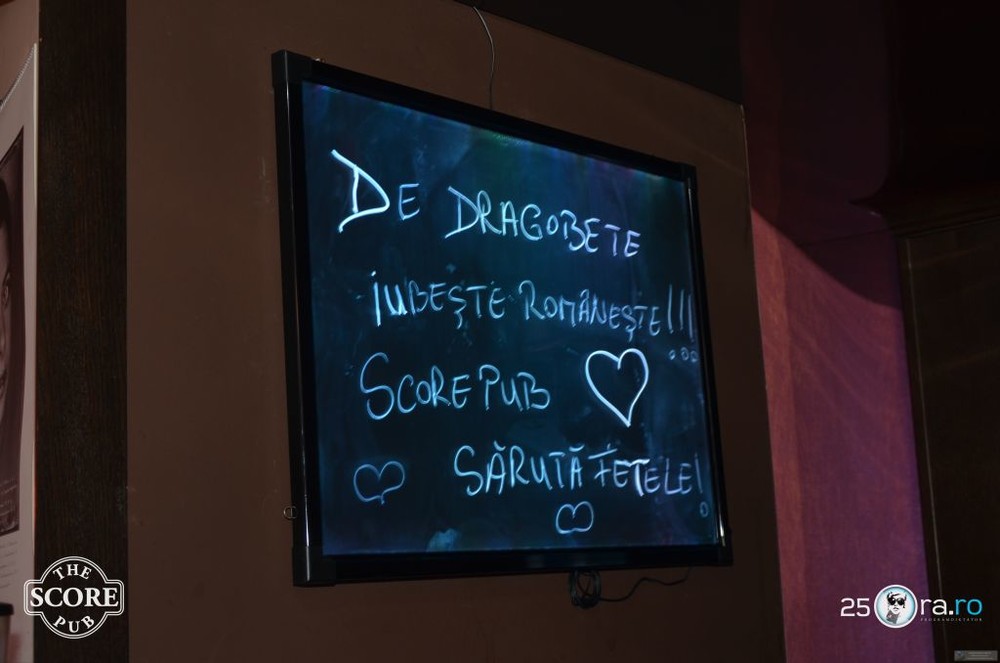 DE DRAGOBETE
IUBEȘTE ROMÂNEȘTE!!!
SCORE PUB
SĂRUTĂ FETELE!
THE
SCORE
PUB
25 ra.ro